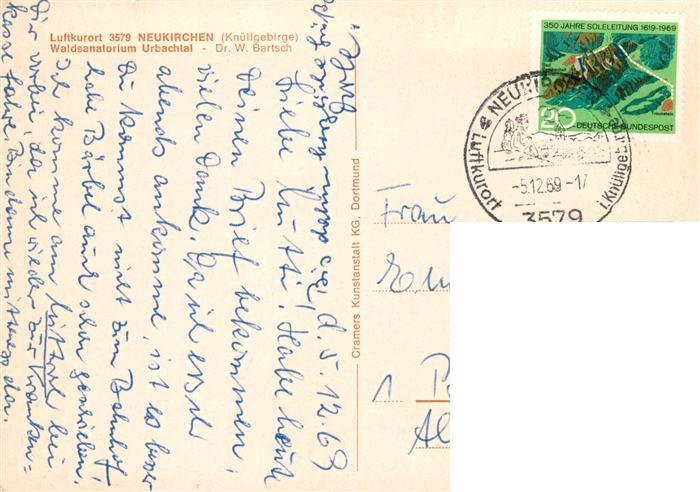 Luftkurort 3579 NEUKIRCHEN (Knüllgebirge)
Waldsanatorium Urbachtal - Dr. W. Bartsch
d. 5. 12. 69
Liebe Mutti! Habe heute
Deinen Brief bekommen,
vielen Dank. Da ich erst
abends ankomme, ist es besser
Du kommst nicht zum Bahnhof,
habe Bärbel auch schon geschrieben.
Ich komme am Mittwoch bei
Dir vorbei, da ich wieder zur Kranken=
kasse fahre. Bin dann mittags da.
Cramers Kunstanstalt KG, Dortmund
350 JAHRE SOLELEITUNG 1619-1969
20
DEUTSCHE BUNDESPOST
Luftkurort
i. Knüllgebirge
-5.12.69-17
3579
Frau
1